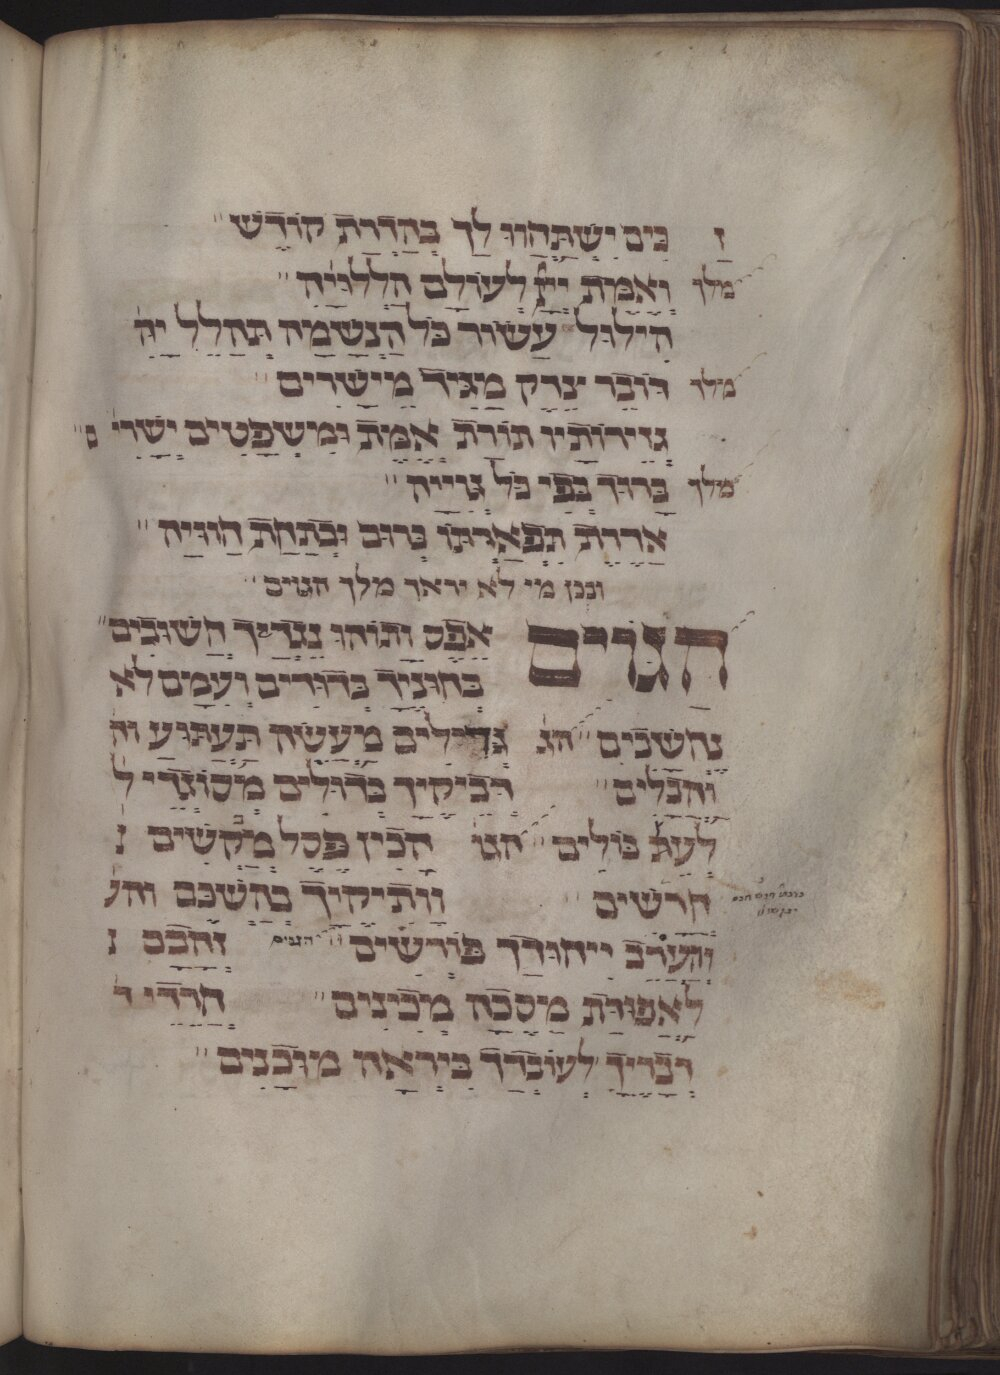 גוים ישתחוו לך בהדרת קודש
מלך ואמת ייי לעולם הללויה
הילול עשור כל הנשמה תהלל יה
מלך דובר צדק מגיד מישרים
גזירותיו תורת אמת ומשפטים ישרים
מלך ברוך בפי כל גוייה
אדרת תפארתו ברום ובתחת הוויה
ובכן מי לא יראך מלך הגוים
הגוים אפס ותוהו נגדיך חשובים
בחוניך בדודים ועמם לא
נחשבים הג גדילים מעשה תעתוע וה
והבלים דביקיך כדולים מפוצדי ל
לעת בולים הגו הבין פסל מקשים
חרשים וותיקיך בהשכם והע
והערב ייחודך פורשים הגוים זהבם
לאפודת מסכה מבינים חרדי ד
דבריך לעובדך ביראה מובנים